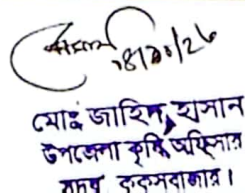 ১৪/১০/২৫
মোঃ জাহিদ হাসান
উপজেলা কৃষি অফিসার
সদর, কক্সবাজার।